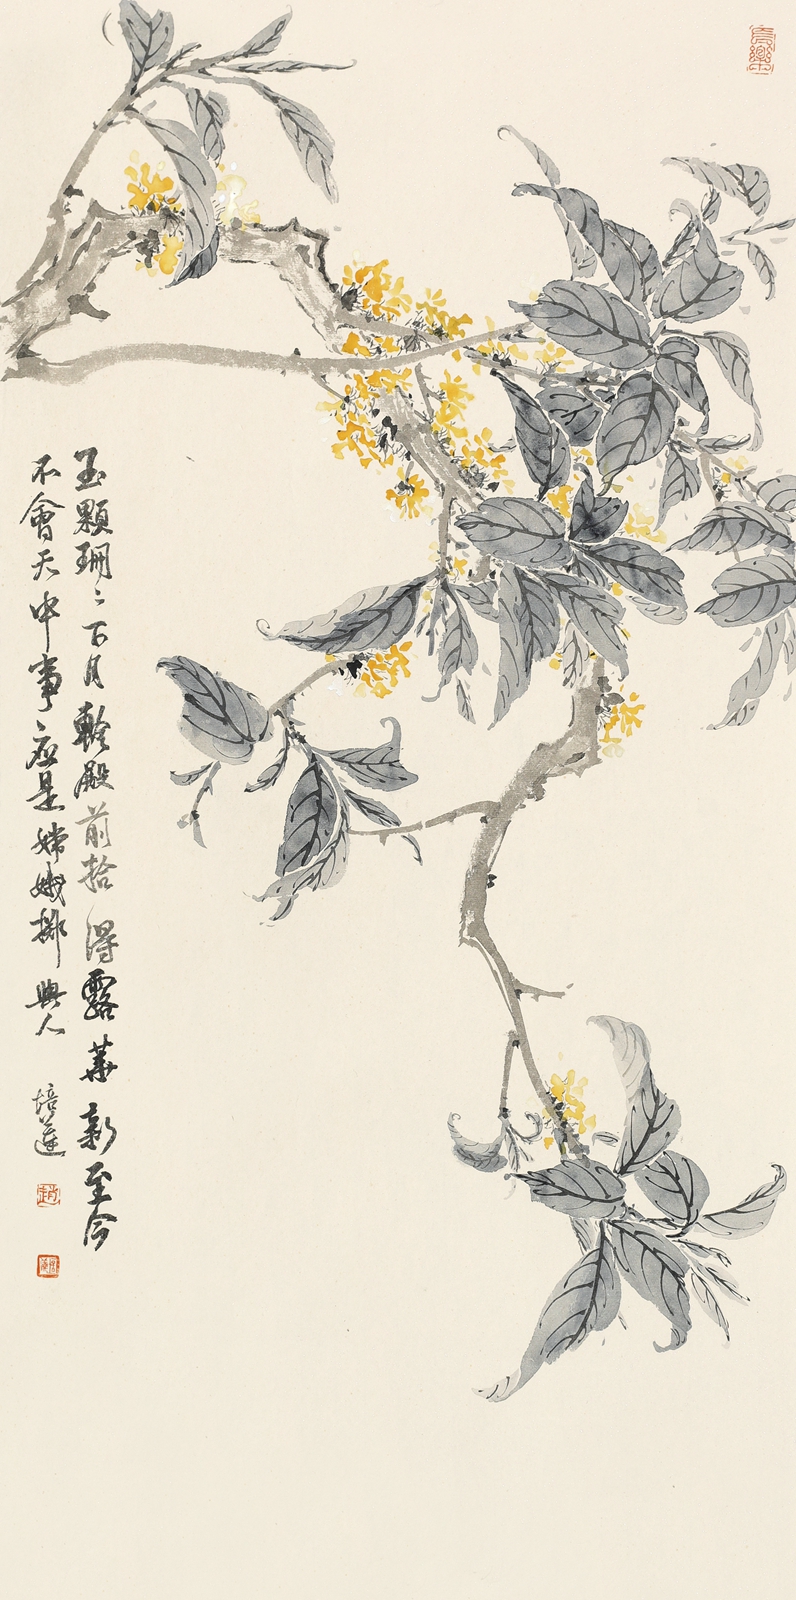 玉顆珊〻下月輪殿前拾得露華新至今
不會天中事應是嫦娥擲與人
培蓮
趙